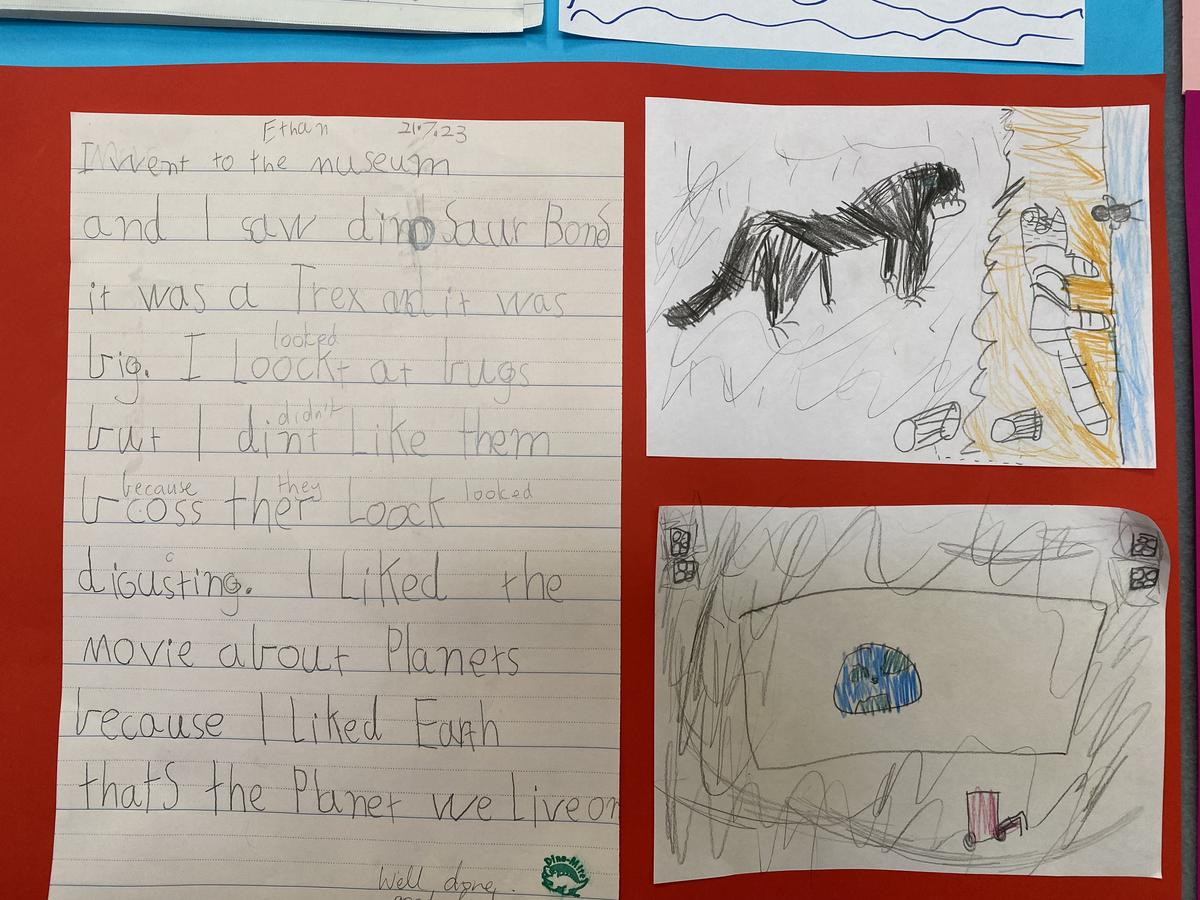 Ethan 21.7.23
I went to the museum
and I saw dinoSaur Bone
it was a Trex and it was
looked
big. I Loockt at bugs
didn't
but I dint Like them
because they looked
bcoss ther Loock
c
digusting. I Liked the
movie about Planets
because I Liked Earth
thatS the Planet we Live on
Well done,
Dino-Mite